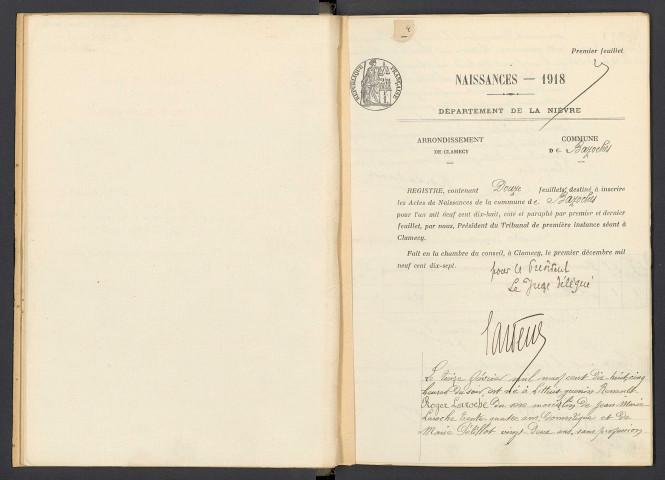 4
Premier feuillet
RÉPUBLIQUE FRANÇAISE
NAISSANCES — 1918
DÉPARTEMENT DE LA NIÈVRE
ARRONDISSEMENT
DE CLAMECY
COMMUNE
DE Bazoches
REGISTRE, contenant Douze feuillets, destiné à inscrire
les Actes de Naissances de la commune de Bazoches
pour l'an mil neuf cent dix-huit, coté et paraphé par premier et dernier
feuillet, par nous, Président du Tribunal de première instance séant à
Clamecy.
Fait en la chambre du conseil, à Clamecy, le premier décembre mil
neuf cent dix-sept.
pour le Président
Le Juge délégué
Le treize février mil neuf cent dix huit cinq
heures du soir, est né à
Roger Laroche du sexe masculin de Jean Marie
Laroche trente quatre ans, domestique et de
Marie vingt deux ans, sans profession